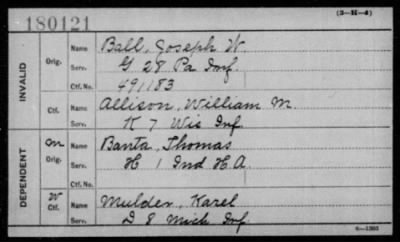 180121
(3-H-4)
INVALID
Orig. Name Ball, Joseph W
Serv. G 28 Pa Inf.
Ctf. No. 491183
Ctf. Name Allison, William M.
Serv. K 7 Wis Inf
DEPENDENT
m Orig. Name Banta, Thomas
Serv. H 1 Ind H.A.
Ctf. No.
W Ctf. Name Mulder, Karel
Serv. D 8 Mich Inf.